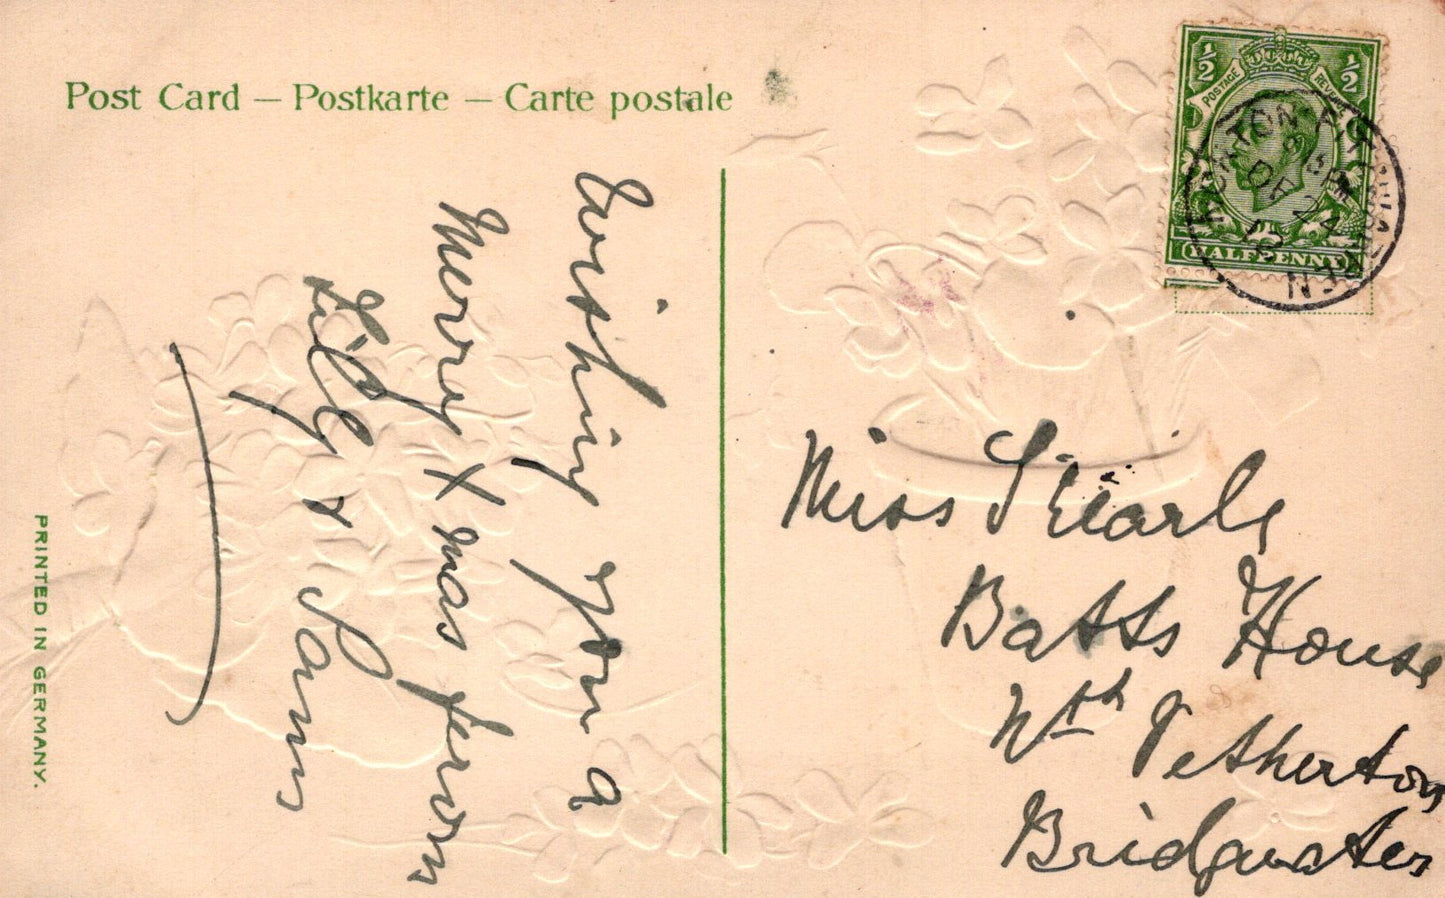 Post Card — Postkarte — Carte postale
½ ½
POSTAGE REVENUE
HALFPENNY
DE 24
12
Wishing you a
Merry Xmas from
Lily & Sam
Miss Searle
Batts House
Nth Petherton
Bridgwater
PRINTED IN GERMANY.